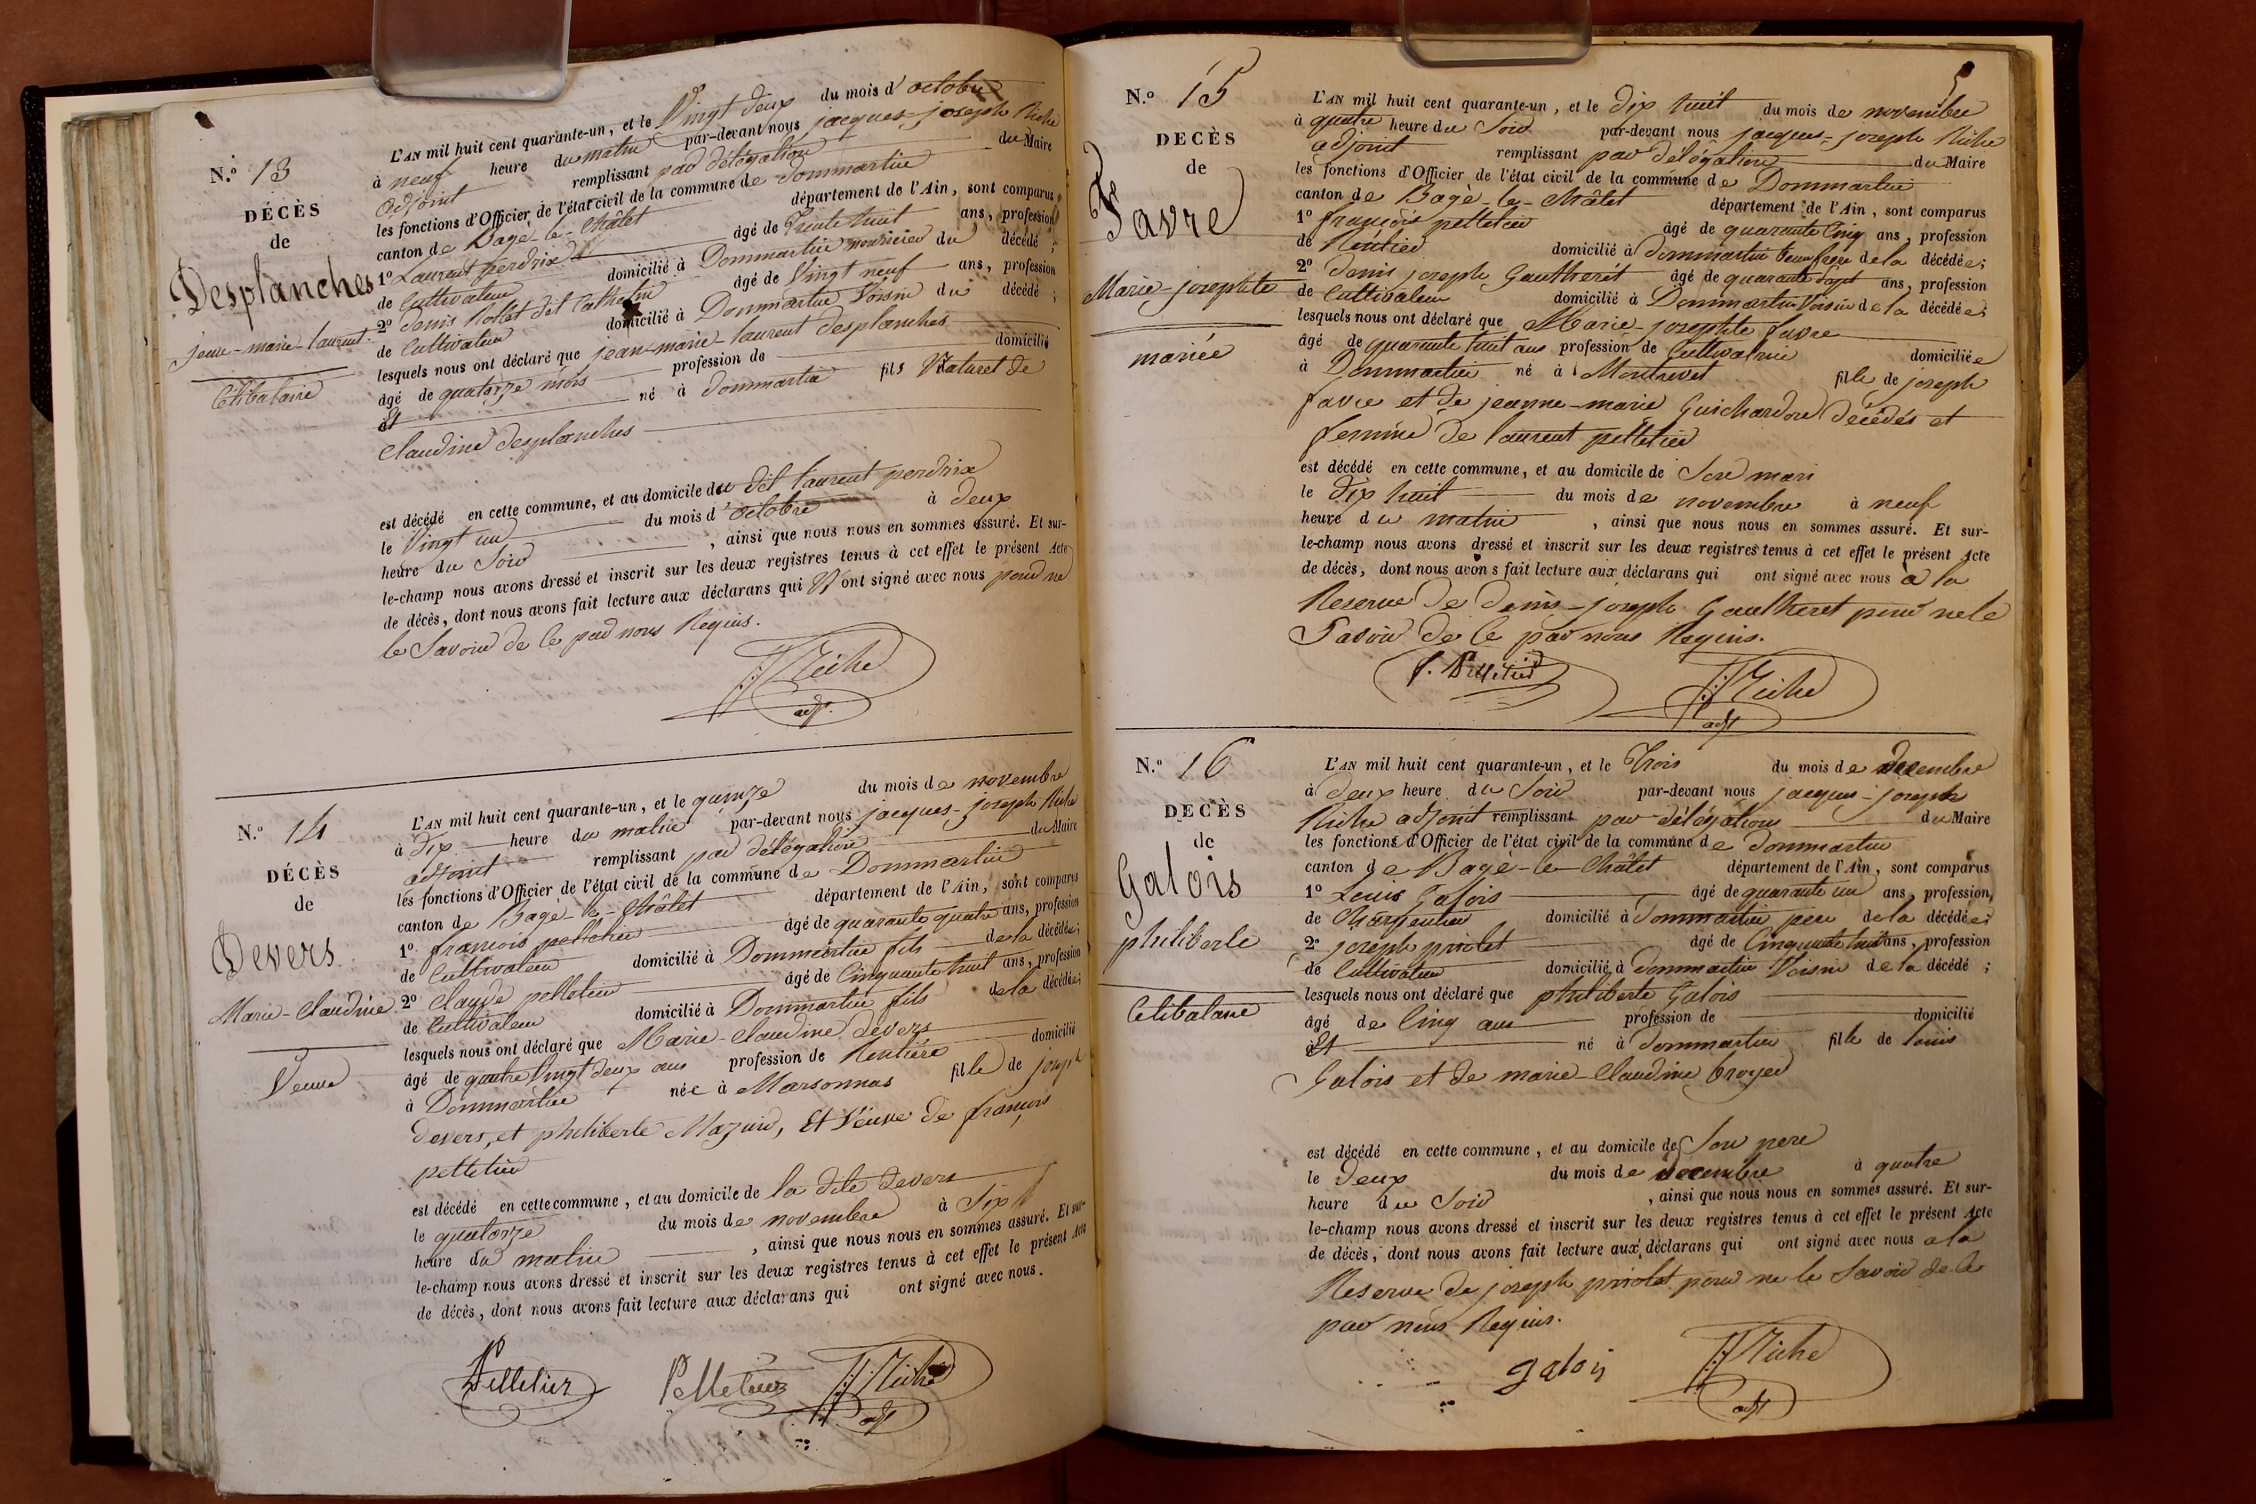 N.o 13
DÉCÈS
de
Desplanches
jean-marie-laurent
Célibataire
L'AN mil huit cent quarante-un, et le Vingt deux du mois d'octobre
à neuf heure du matin par-devant nous jacques-joseph Riche
adjoint remplissant par délégation du Maire
les fonctions d'Officier de l'état civil de la commune de Dommartin
canton de Bagé-le-Châtel département de l'Ain, sont comparus
1o Laurent perdrix âgé de Trente huit ans, profession
de Cultivateur domicilié à Dommartin nourricier du décédé;
2o Denis Rollet dit Cathelin âgé de Vingt neuf ans, profession
de Cultivateur domicilié à Dommartin Voisin du décédé;
lesquels nous ont déclaré que jean-marie-laurent desplanches
âgé de quatorze mois profession de domicilié
à né à dommartin fils Naturel de
Claudine desplanches
est décédé en cette commune, et au domicile du dit laurent perdrix
le Vingt un du mois d'octobre à deux
heure du Soir, ainsi que nous nous en sommes assuré. Et sur-
le-champ nous avons dressé et inscrit sur les deux registres tenus à cet effet le présent Acte
de décès, dont nous avons fait lecture aux déclarans qui N'ont signé avec nous pour ne
le Savoir de Ce par nous Requis.
JJRiche
adjt
N.o 14
DÉCÈS
de
Devers
Marie-Claudine
Veuve
L'AN mil huit cent quarante-un, et le quinze du mois de novembre
à dix heure du matin par-devant nous jacques-joseph Riche
adjoint remplissant par délégation du Maire
les fonctions d'Officier de l'état civil de la commune de Dommartin
canton de Bagé-le-Châtel département de l'Ain, sont comparus
1o françois pelletier âgé de quarante quatre ans, profession
de Cultivateur domicilié à Dommartin fils de la décédée;
2o Claude pelletier âgé de Cinquante huit ans, profession
de Cultivateur domicilié à Dommartin fils de la décédée;
lesquels nous ont déclaré que Marie-Claudine devers
âgé de quatre Vingt deux ans profession de Rentière domicilié
à Dommartin née à Marsonnas fille de joseph
devers, et philiberte Mazuir, Et Veuve de françois
pelletier
est décédé en cette commune, et au domicile de la dite devers
le quatorze du mois de novembre à Six
heure du matin, ainsi que nous nous en sommes assuré. Et sur-
le-champ nous avons dressé et inscrit sur les deux registres tenus à cet effet le présent Acte
de décès, dont nous avons fait lecture aux déclarans qui ont signé avec nous.
Pelletier Pelletier JJRiche
adjt
5
N.o 15
DECÈS
de
Favre
Marie-josephte
mariée
L'AN mil huit cent quarante-un, et le dix huit du mois de novembre
à quatre heure du Soir par-devant nous jacques-joseph Riche
adjoint remplissant par délégation du Maire
les fonctions d'Officier de l'état civil de la commune de Dommartin
canton de Bagé-le-Châtel département de l'Ain, sont comparus
1o françois pelletier âgé de quarante Cinq ans, profession
de Rentier domicilié à dommartin beau frère de la décédée;
2o Denis joseph Gautheret âgé de quarante Sept ans, profession
de Cultivateur domicilié à Dommartin Voisin de la décédée;
lesquels nous ont déclaré que Marie-josephte favre
âgé de quarante huit ans profession de Cultivatrice domiciliée
à Dommartin né à Montrevel fille de joseph
favre et de jeanne-marie Guichardon décédés et
femme de laurent pelletier
est décédé en cette commune, et au domicile de Son mari
le dix huit du mois de novembre à neuf
heure du matin, ainsi que nous nous en sommes assuré. Et sur-
le-champ nous avons dressé et inscrit sur les deux registres tenus à cet effet le présent Acte
de décès, dont nous avons fait lecture aux déclarans qui ont signé avec nous à la
Reserve de denis-joseph Gautheret pour ne le
Savoir de Ce par nous Requis.
f. Pelletier JJRiche
adjt
N.o 16
DECÈS
de
Galois
philiberte
Célibataire
L'AN mil huit cent quarante-un, et le Trois du mois de decembre
à deux heure du Soir par-devant nous jacques-joseph
Riche adjoint remplissant par délégation du Maire
les fonctions d'Officier de l'état civil de la commune de dommartin
canton de Bagé-le-Châtel département de l'Ain, sont comparus
1o Louis Galois âgé de quarante un ans, profession
de Charpentier domicilié à Dommartin père de la décédée;
2o joseph priolet âgé de Cinquante huit ans, profession
de Cultivateur domicilié à dommartin Voisin de la décédé;
lesquels nous ont déclaré que philiberte Galois
âgé de Cinq ans profession de domicilié
à né à dommartin fille de louis
Galois et de marie-Claudine broyer
est décédé en cette commune, et au domicile de Son père
le Deux du mois de decembre à quatre
heure du Soir, ainsi que nous nous en sommes assuré. Et sur-
le-champ nous avons dressé et inscrit sur les deux registres tenus à cet effet le présent Acte
de décès, dont nous avons fait lecture aux déclarans qui ont signé avec nous a la
Reserve de joseph priolet pour ne le Savoir de Ce
par nous Requis.
galois JJRiche
adjt